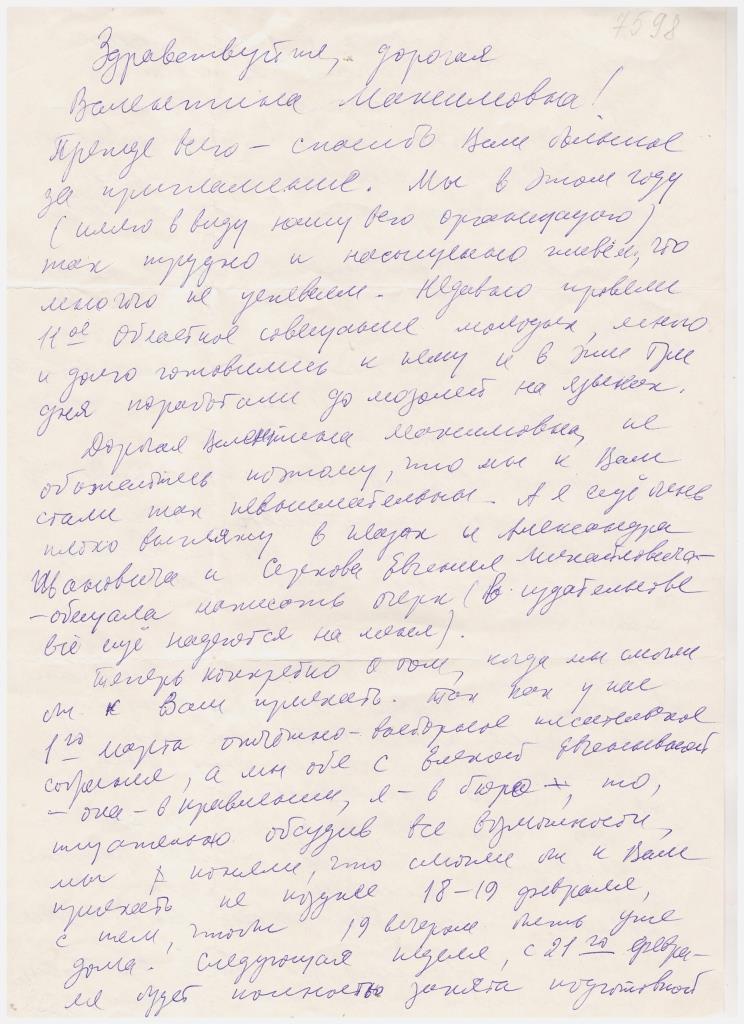 7598
Здравствуйте, дорогая
Валентина Максимовна!
Прежде всего – спасибо Вам большое
за приглашение. Мы в этом году
(имею в виду нашу всю организацию)
так трудно и насыщенно живём, что
многого не успеваем. Недавно провели
11ое Областное совещание молодых, много
и долго готовились к нему и в эти три
дня поработали до мозолей на языках.
Дорогая Валентина Максимовна, не
обижайтесь поэтому, что мы к Вам
стали так невнимательны. А я ещё очень
плохо выгляжу в глазах и Александра
Ивановича и Серкова Евгения Михайловича –
– обещала написать очерк (в издательстве
всё ещё надеются на меня).
Теперь конкретно о том, когда мы смогли
бы к Вам приехать. Так как у нас
1го марта отчётно-выборное писательское
собрание, а мы обе с Евгеньевной
– она – в правлении, я – в бюро, то,
тщательно обсудив все возможности,
мы поняли, что смогли бы к Вам
приехать не позднее 18–19 февраля,
с тем, чтобы 19 вечером быть уже
дома. Следующая неделя, с 21го февра-
ля будет полностью занята подготовкой